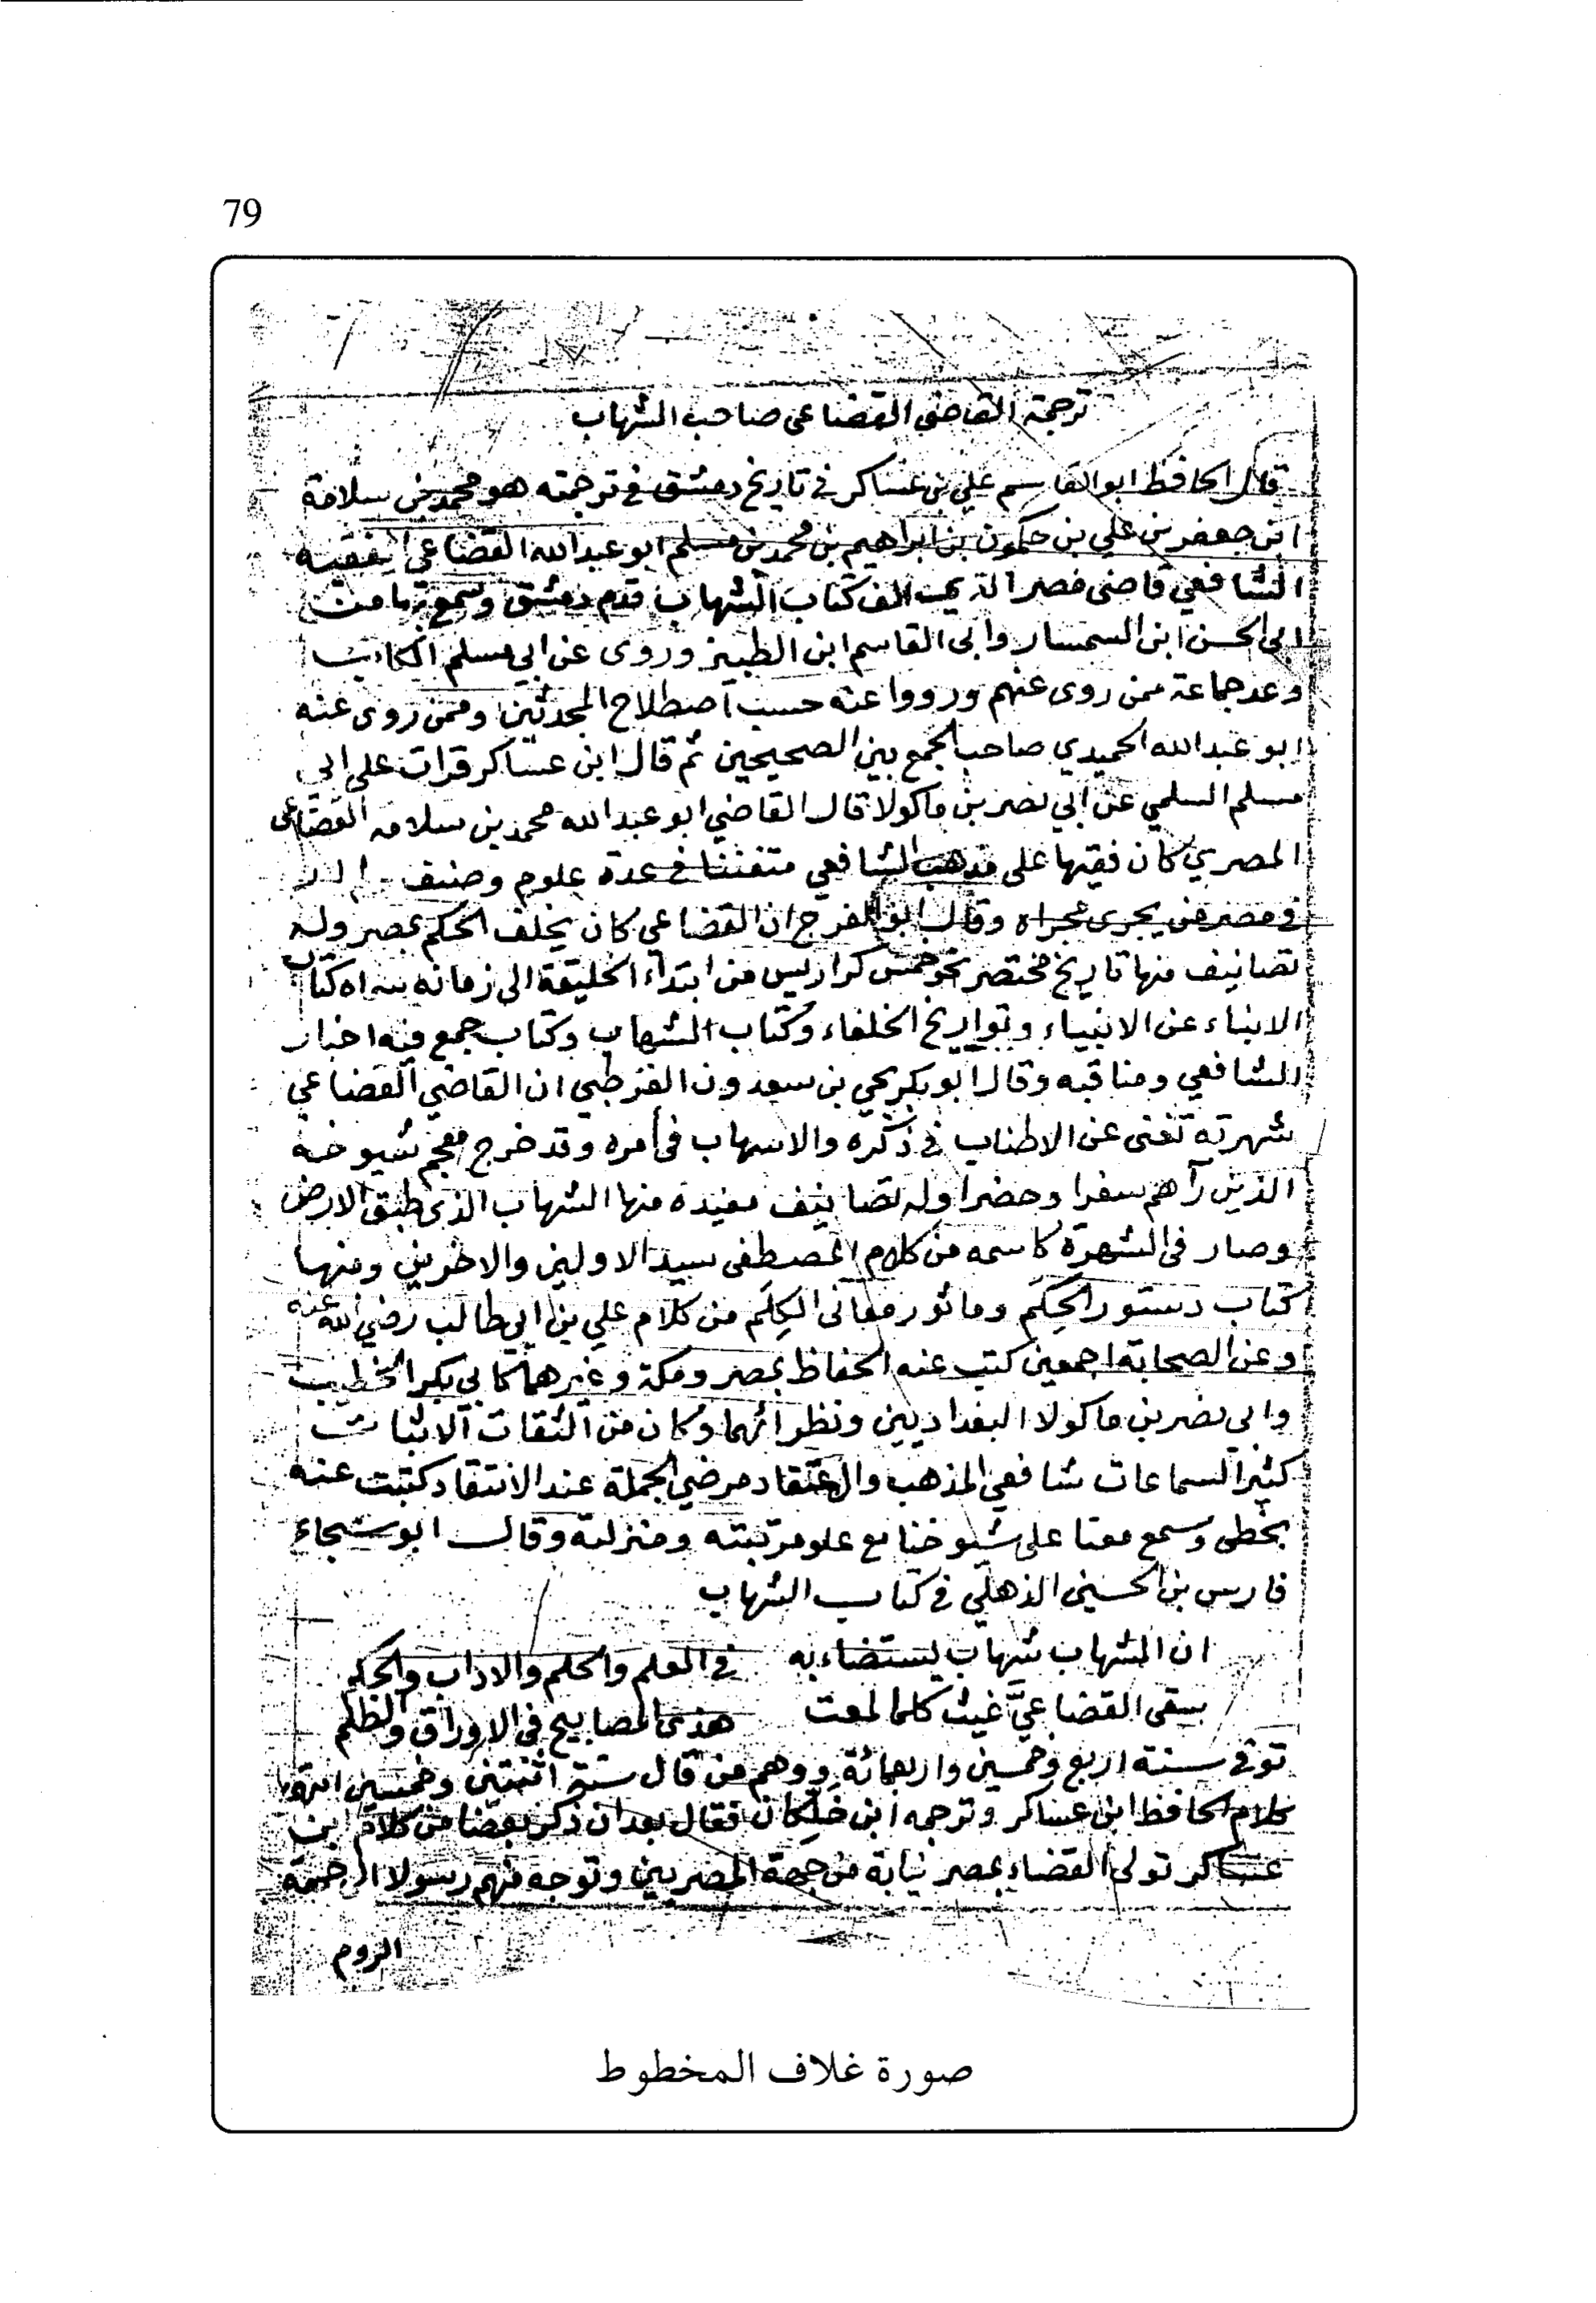 79
ترجمة القاضي القضاعي صاحب الشهاب
قال الحافظ ابو القاسم علي بن عساكر في تاريخ دمشق في ترجمته هو محمد بن سلامة
ابن جعفر بن علي بن حكمون بن ابراهيم بن محمد بن مسلم ابو عبد الله القضاعي الفقيه
الشافعي قاضي مصر الذي الف كتاب الشهاب قدم دمشق وسمع بها من
ابي الحسن ابن السمسار وابي القاسم ابن الطبيز وروى عن ابي مسلم الكاتب
وعد جماعة ممن روى عنهم ورووا عنه حسب اصطلاح المحدثين وممن روى عنه
ابو عبد الله الحميدي صاحب الجمع بين الصحيحين ثم قال ابن عساكر قرات على ابي
مسلم السلمي عن ابي نصر بن ماكولا قال القاضي ابو عبد الله محمد بن سلامه القضاعي
المصري كان فقيها على مذهب الشافعي متفننا في عدة علوم وصنف
في مصر من يجرى مجراه وقال ابو الفرج ان القضاعي كان يخلف الحكم بمصر وله
تصانيف منها تاريخ مختصر نحو خمس كراريس من ابتداء الخليقة الى زمانه سماه كتاب
الانباء عن الانبياء وتواريخ الخلفاء وكتاب الشهاب وكتاب جمع فيه اخبار
الشافعي ومناقبه وقال ابو بكر يحيى بن سعدون القرطبي ان القاضي القضاعي
شهرته تغنى عن الاطناب في ذكره والاسهاب في أمره وقد خرج معجم شيوخه
الذين رآهم سفرا وحضرا وله تصانيف مفيدة منها الشهاب الذي طبق الارض
وصار في الشهرة كاسمه من كلام المصطفى سيد الاولين والاخرين ومنها
كتاب دستور الحِكَم وماثور معاني الكِلَم من كلام علي بن ابي طالب رضي الله عنه
وعن الصحابة اجمعين كتب عنه الحفاظ بمصر ومكة وغيرهما كابي بكر الخطيب
وابي نصر بن ماكولا البغداديين ونظرائهما وكان من الثقات الاثبات
كثير السماعات شافعي المذهب والاعتقاد مرضي الجملة عند الانتقاد كتبت عنه
بخطي وسمع معنا على شيوخنا مع علو مرتبته ومنزلته وقال ابو شجاع
فارس بن الحسين الذهلي في كتاب الشهاب
ان الشهاب شهاب يستضاء به في العلم والحلم والاداب والحكم
سقى القضاعيَّ غيث كلما لمعت هذى المصابيح في الاوراق والظلم
توفي سنة اربع وخمسين واربعمائة ووهم من قال سنة اثنتين وخمسين انتهى
كلام الحافظ ابن عساكر وترجمه ابن خلكان فقال بعد ان ذكر بعضا من كلام ابن
عساكر تولى القضاء بمصر نيابة من جهة المصريين وتوجه منهم رسولا الى جهة
الروم
صورة غلاف المخطوط